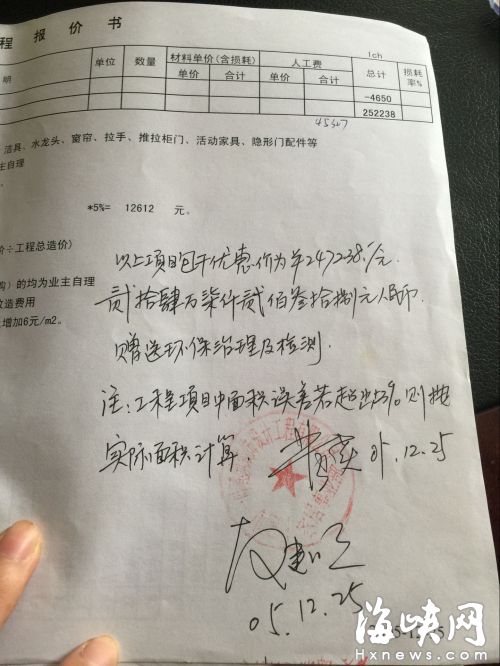 程 报 价 书
明 单位 数量 材料单价(含损耗) 人工费 lch 总计 损耗率%
单价 合计 单价 合计
-4650
252238
洁具、水龙头、窗帘、拉手、推拉柜门、活动家具、隐形门配件等
主自理
*5%= 12612 元。
价÷工程总造价)
以上项目包干优惠价为¥247238./元.
购）的均为业主自理
贰拾肆万柒仟贰佰叁拾捌元人民币.
改造费用
增加6元/m2。
赠送环保治理及检测.
注:工程项目中面积误差若超出3%则按
实际面积计算.
05.12.25
05.12.25
海峡网
Hxnews.com